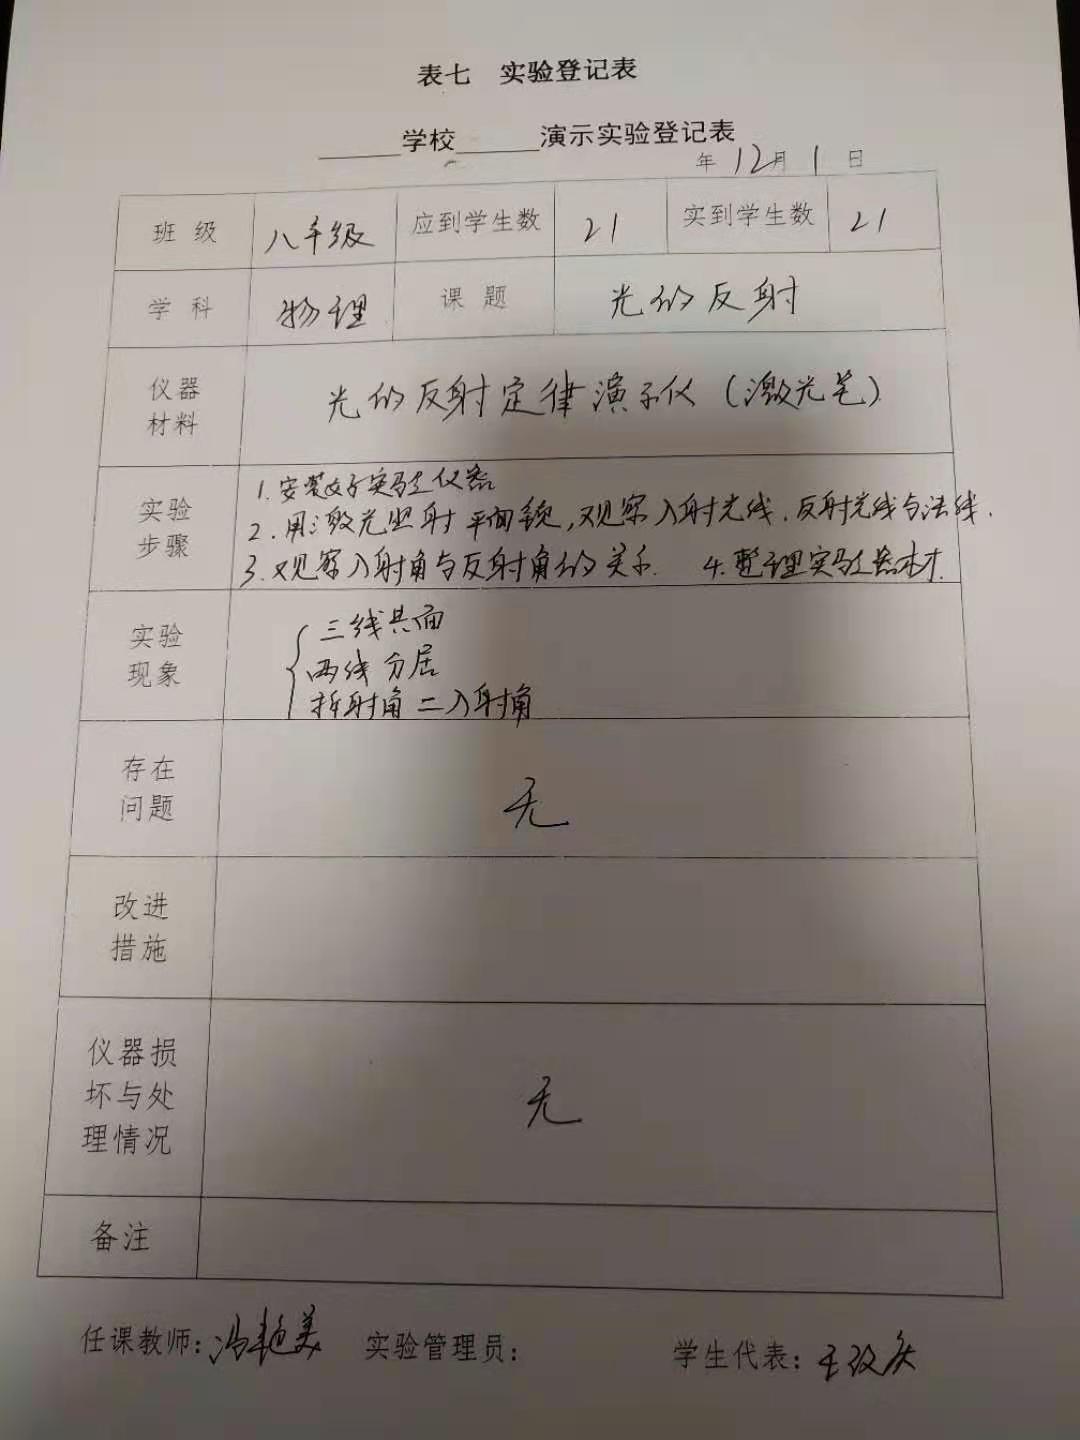 表七 实验登记表
______学校______演示实验登记表
年 12月 1 日
班 级 八年级 应到学生数 21 实到学生数 21
学 科 物理 课 题 光的反射
仪器
材料
光的反射定律演示仪（激光笔）
实验
步骤
1.安装好实验仪器
2.用激光照射平面镜,观察入射光线.反射光线与法线.
3.观察入射角与反射角的关系. 4.整理实验器材.
实验
现象
三线共面
两线分居
折射角=入射角
存在
问题
无
改进
措施
仪器损
坏与处
理情况
无
备注
任课教师:冯艳美 实验管理员: 学生代表:王